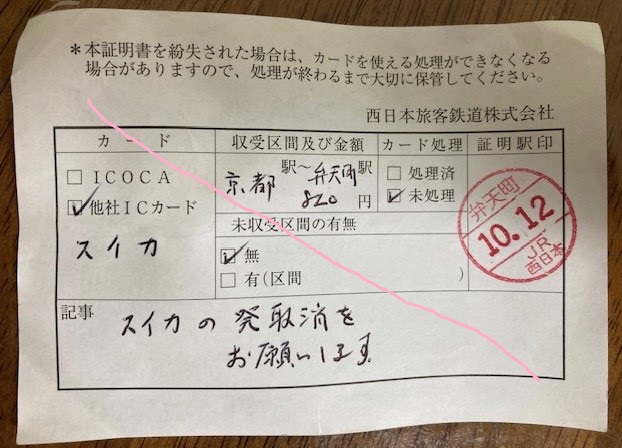 ＊本証明書を紛失された場合は、カードを使える処理ができなくなる
場合がありますので、処理が終わるまで大切に保管してください。
西日本旅客鉄道株式会社
カード
収受区間及び金額
カード処理
証明駅印
□ICOCA
☑他社ICカード
スイカ
京都駅〜弁天町駅
820円
□処理済
☑未処理
未収受区間の有無
☑無
□有(区間　　　　)
弁天町
10.12
JR
西日本
記事
スイカの発取消を
お願いします